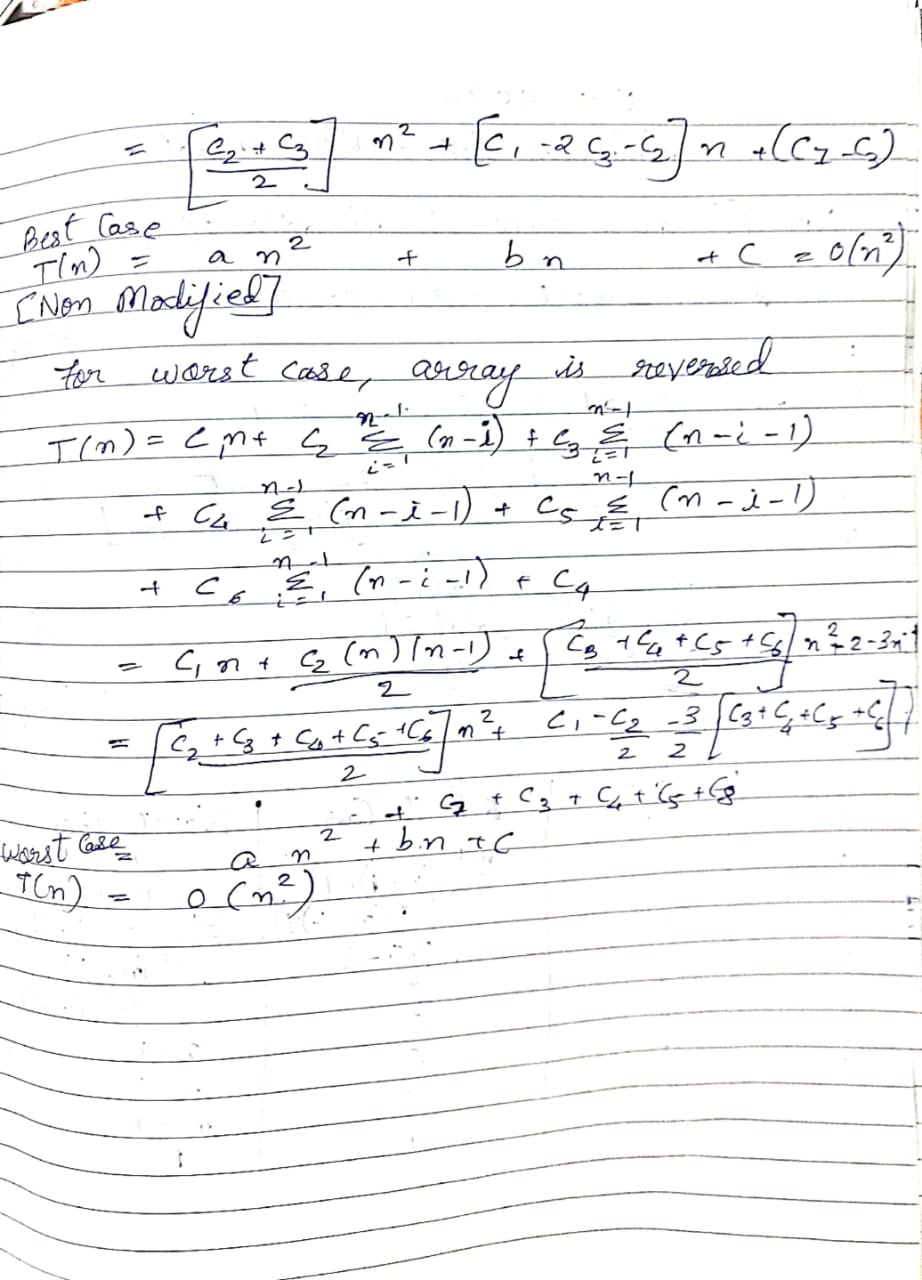 = [C₂ + C₃ / 2] n² + [C₁ - 2 C₃ - C₂] n + (C₇ - C₃)
Best Case
T(n) = a n² + b n + C = O(n²)
[Non Modified]
For worst case, array is reversed
T(n) = C₁n + C₂ Σ_{i=1}^{n-1} (n-i) + C₃ Σ_{i=1}^{n-1} (n-i-1)
+ C₄ Σ_{i=1}^{n-1} (n-i-1) + C₅ Σ_{i=1}^{n-1} (n-i-1)
+ C₆ Σ_{i=1}^{n-1} (n-i-1) + C₄
= C₁ n + C₂ (n) (n-1) / 2 + [C₃ + C₄ + C₅ + C₆ / 2] n² + 2 - 3n
= [C₂ + C₃ + C₄ + C₅ + C₆ / 2] n² + C₁ - C₂ / 2 - 3 / 2 [C₃ + C₄ + C₅ + C₆]
+ C₇ + C₃ + C₄ + C₅ + C₈
Worst Case a n² + b.n + C
T(n) = O(n²)